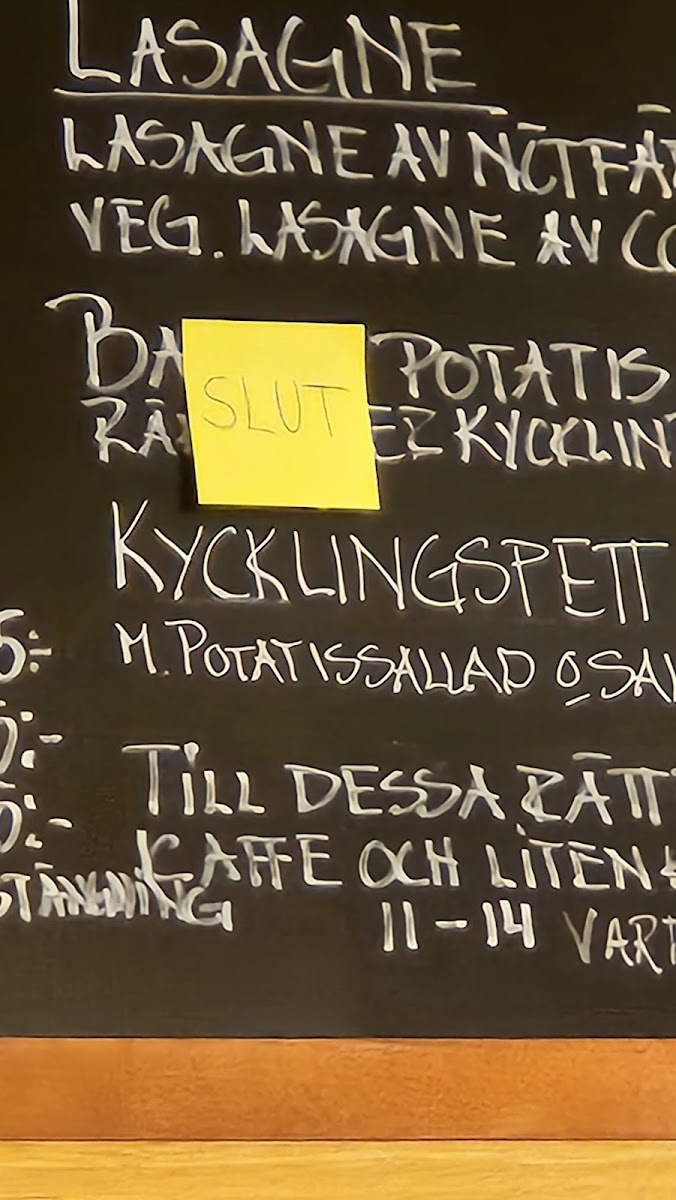 LASAGNE
LASAGNE AV NÖTFÄ
VEG. LASAGNE AV CO
BA POTATIS
SLUT
RÄ EL KYCKLIN
KYCKLINGSPETT
M. POTATISSALLAD O SAL
5:-
0:-
0:-
TILL DESSA RÄTT
KAFFE OCH LITEN
STÄNGNING
11-14 VART